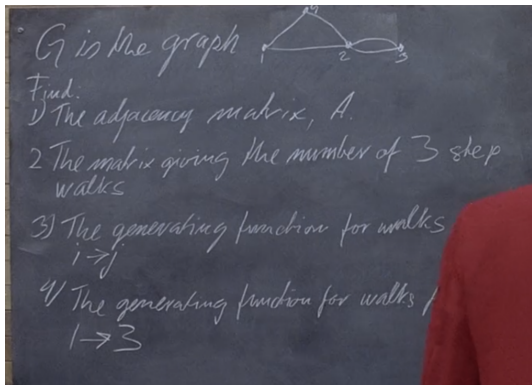 G is the graph
4
1 2 3
Find:
1) The adjacency matrix, A.
2 The matrix giving the number of 3 step
walks
3) The generating function for walks
i→j
4) The generating function for walks
1→3